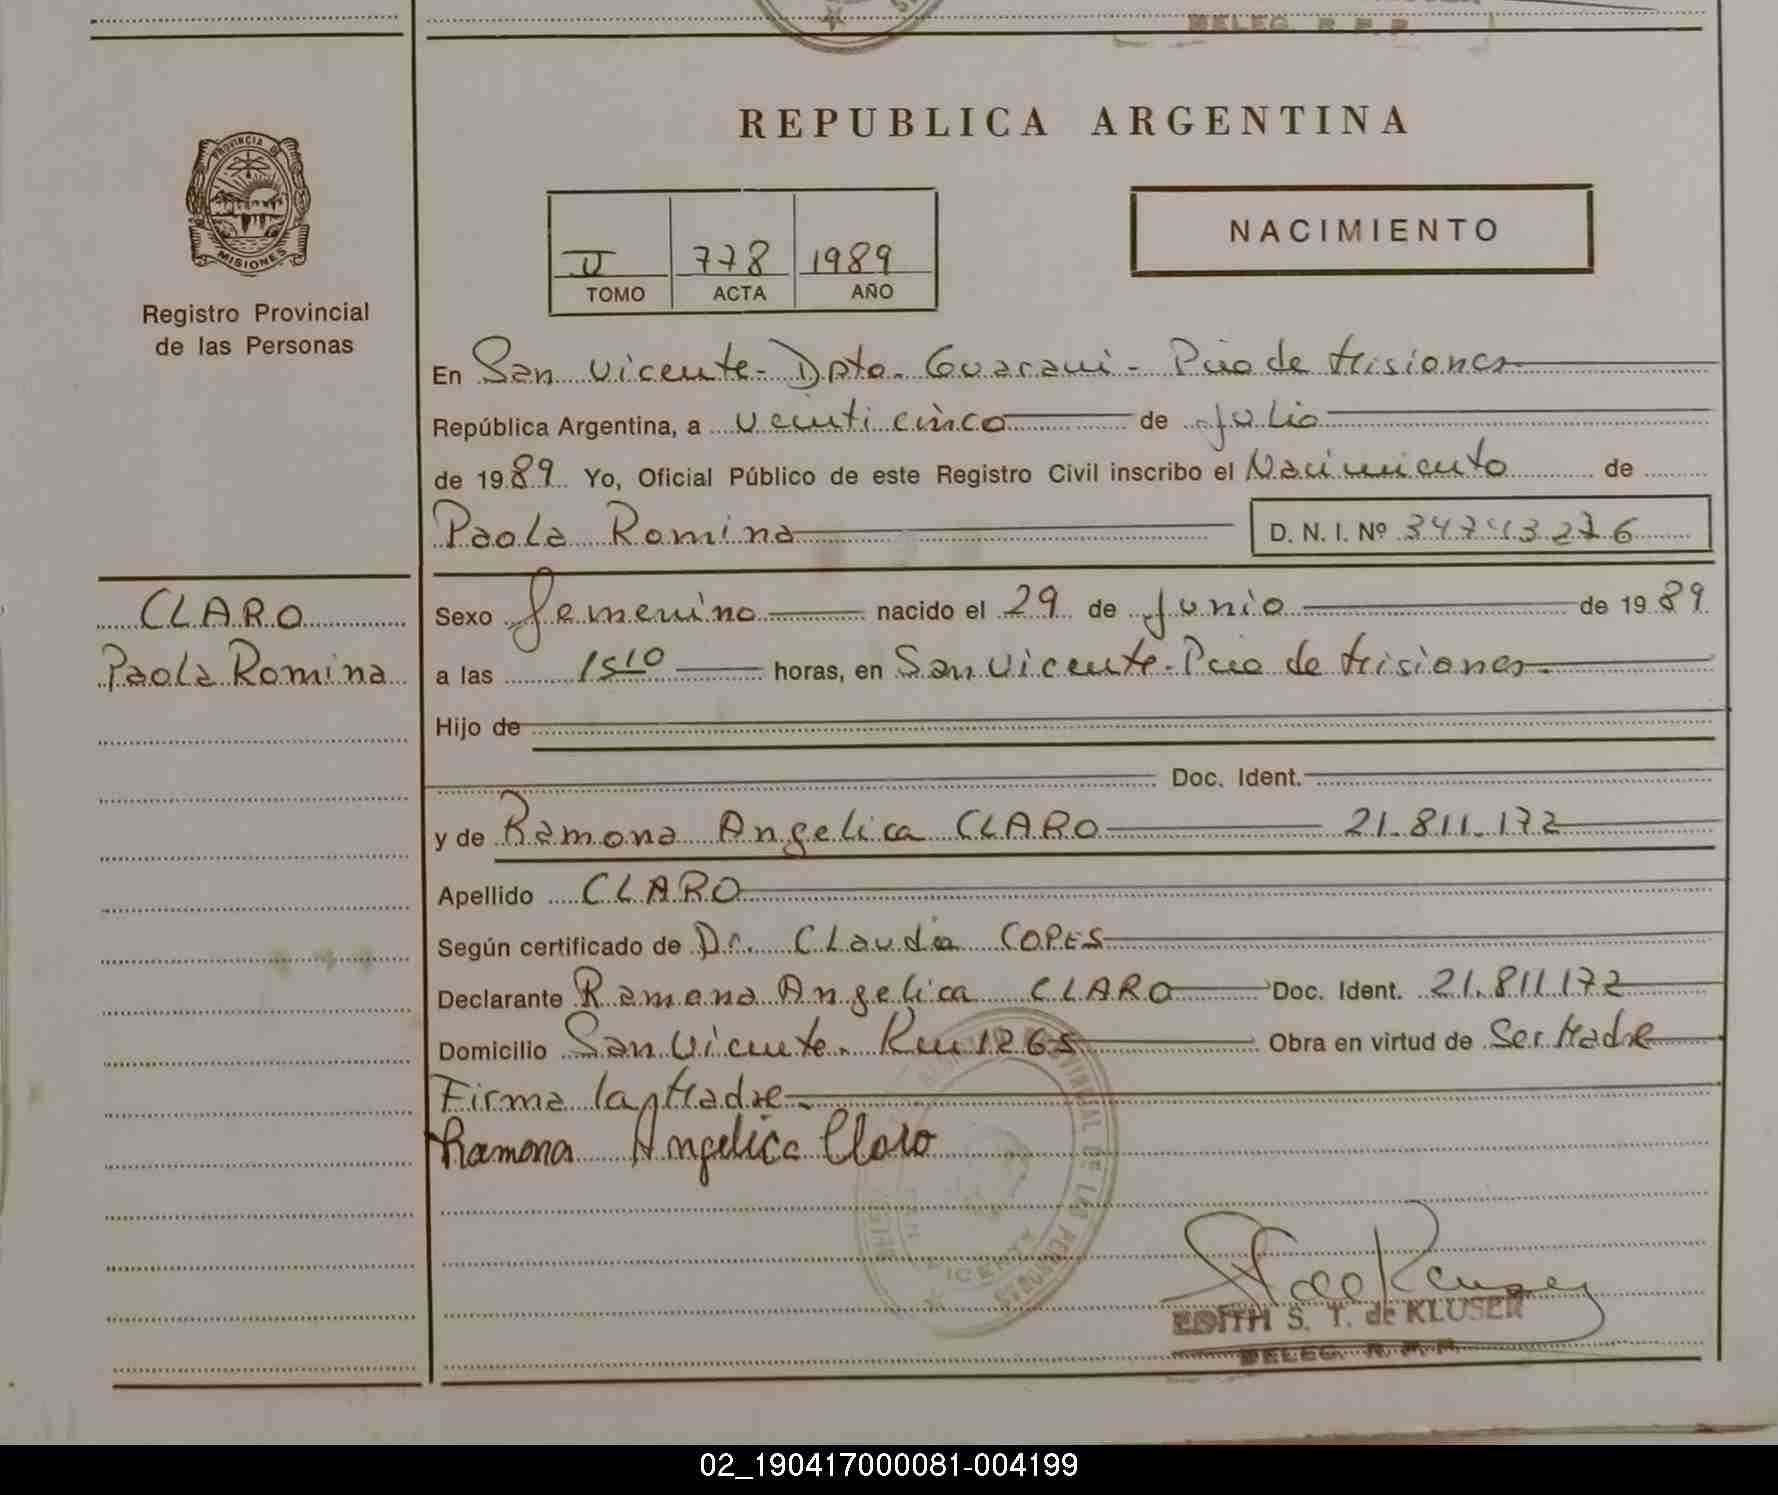 REPUBLICA ARGENTINA
PROVINCIA DE
MISIONES
Registro Provincial
de las Personas
II 778 1989
TOMO ACTA AÑO
NACIMIENTO
En San Vicente - Dpto. Guarani - Pcia de Misiones
República Argentina, a veinti cinco de Julio
de 1989 Yo, Oficial Público de este Registro Civil inscribo el Nacimiento de
Paola Romina D. N. I. Nº 34743276
CLARO
Paola Romina
Sexo Femenino nacido el 29 de Junio de 1989
a las 15 10 horas, en San Vicente - Pcia de Misiones
Hijo de
Doc. Ident.
y de Ramona Angelica CLARO 21.811.172
Apellido CLARO
Según certificado de Dr. Claudia COPES
Declarante Ramona Angelica CLARO Doc. Ident. 21.811.172
Domicilio San Vicente. Km 1265 Obra en virtud de Ser Madre
Firma la Madre
Ramona Angelica Claro
EDITH S. T. de KLUSER
DELEG. R. P. P.
02_190417000081-004199